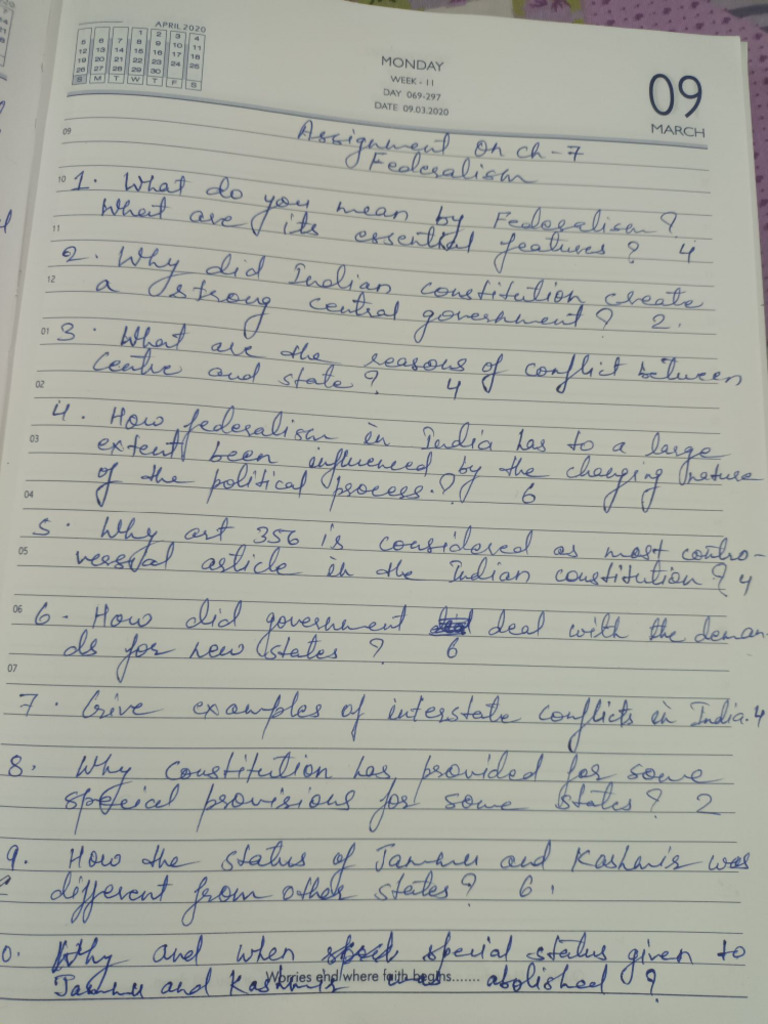 APRIL 2020
1 2 3 4
5 6 7 8 9 10 11
12 13 14 15 16 17 18
19 20 21 22 23 24 25
26 27 28 29 30
S M T W T F S
MONDAY
WEEK - 11
DAY 069-297
DATE 09.03.2020
09
MARCH
09
Assignment on ch-7
Federalism
10 1. What do you mean by Federalism?
What are its essential features? 4
11
2. Why did Indian constitution create
12
a strong central government? 2.
01 3. What are the reasons of conflict between
Centre and state? 4
02
4. How federalism in India has to a large
03
extent been influenced by the changing nature
of the political process.? 6
04
5. Why art 356 is considered as most contro-
05
versial article in the Indian constitution? 4
06 6. How did government deal with the deman-
ds for new states? 6
07
7. Give examples of interstate conflicts in India. 4
8. Why constitution has provided for some
special provisions for some states? 2
9. How the status of Jammu and Kashmir was
different from other states? 6.
0. Why and when special status given to
Jammu and Kashmir was abolished?
Worries end where faith begins.......